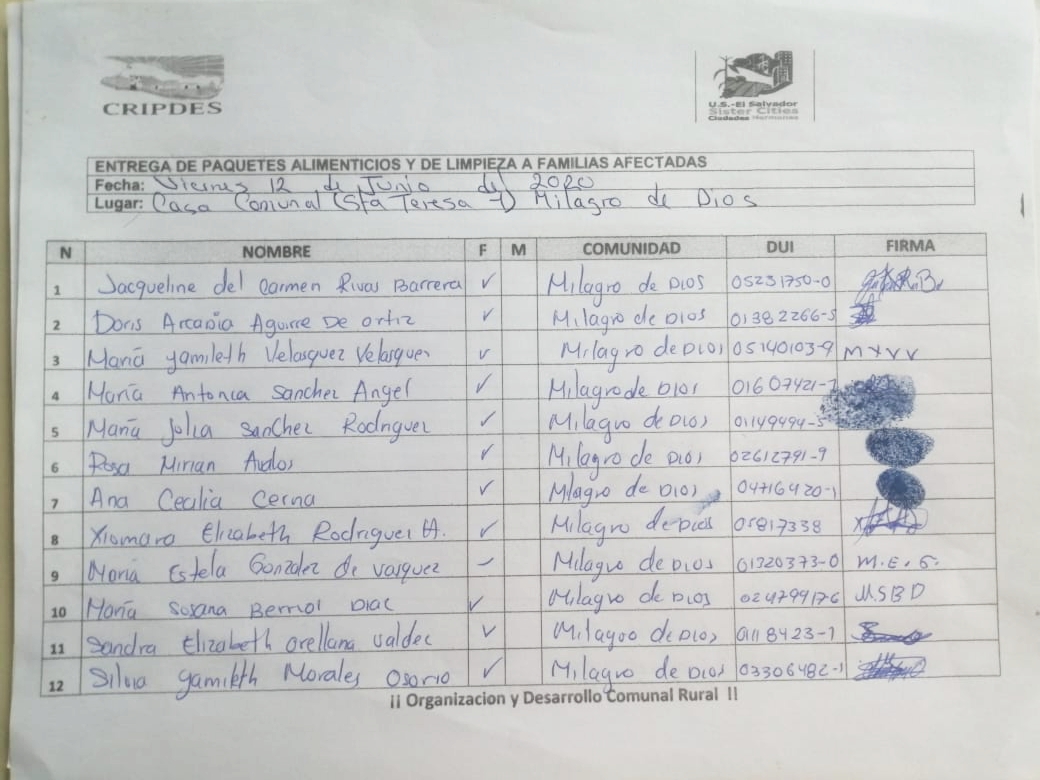 CRIPDES
U.S.-El Salvador
Sister Cities
Ciudades Hermanas
ENTREGA DE PAQUETES ALIMENTICIOS Y DE LIMPIEZA A FAMILIAS AFECTADAS
Fecha: Viernes 12 de Junio del 2020
Lugar: Casa Comunal (Sta Teresa 1) Milagro de Dios
N NOMBRE F M COMUNIDAD DUI FIRMA
1 Jacqueline del Carmen Rivas Barrera ✓ Milagro de Dios 05231750-0
2 Doris Arcadia Aguirre De Ortiz ✓ Milagro de Dios 01382266-5
3 Maria Yamileth Velasquez Velasquez ✓ Milagro de Dios 05140103-9 MYVV
4 Maria Antonia Sanchez Angel ✓ Milagro de Dios 01607421-7
5 Maria Julia Sanchez Rodriguez ✓ Milagro de Dios 01149494-5
6 Rosa Mirian Avalos ✓ Milagro de Dios 02612791-9
7 Ana Cecilia Cerna ✓ Milagro de Dios 04716420-1
8 Xiomara Elizabeth Rodriguez A. ✓ Milagro de Dios 05817338
9 Maria Estela Gonzalez de Vasquez ✓ Milagro de Dios 01320373-0 M.E.G.
10 Maria Susana Bernal Diaz ✓ Milagro de Dios 024799176 MSBD
11 Sandra Elizabeth Orellana Valdez ✓ Milagro de Dios 01118423-1
12 Silvia Yamileth Morales Osorio ✓ Milagro de Dios 03306482-1
¡¡ Organizacion y Desarrollo Comunal Rural !!